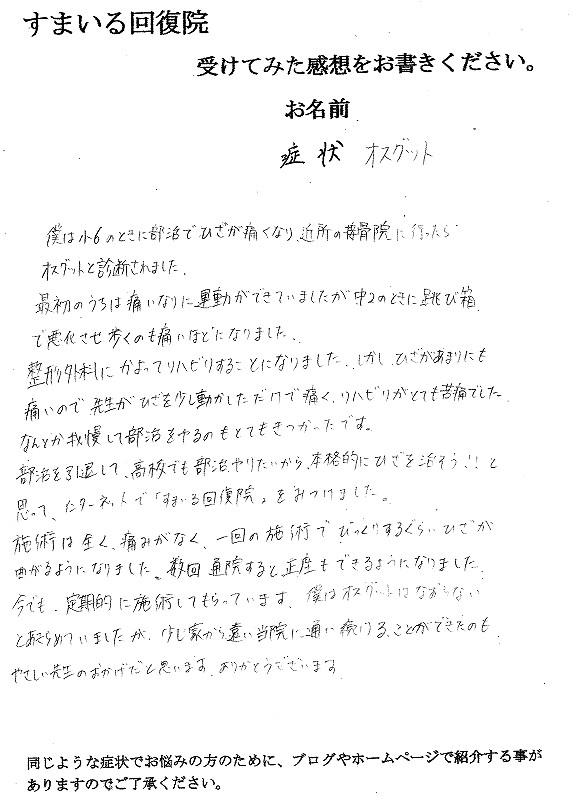 すまいる回復院
受けてみた感想をお書きください。
お名前
症状 オスグット
僕は小6のときに部活でひざが痛くなり、近所の接骨院に行ったら
オスグットと診断されました。
最初のうちは痛いなりに運動ができていましたが中2のときに跳び箱
で悪化させ歩くのも痛いほどになりました。
整形外科にかよってリハビリすることになりました。しかし、ひざがあまりにも
痛いので先生がひざを少し動かしただけで痛く、リハビリがとても苦痛でした。
なんとか我慢して部活をやるのもとてもきつかったです。
部活を引退して、高校でも部活やりたいから、本格的にひざを治そう!!と
思って、インターネットで「すまいる回復院」をみつけました。
施術は全く、痛みがなく、一回の施術でびっくりするぐらいひざが
曲がるようになりました。数回通院すると正座もできるようになりました。
今でも、定期的に施術してもらっています。僕はオスグットはなおらない
とあきらめていましたが、少し家から遠い当院に通い続けることができたのも
やさしい先生のおかげだと思います。ありがとうございます。
同じような症状でお悩みの方のために、ブログやホームページで紹介する事が
ありますのでご了承ください。